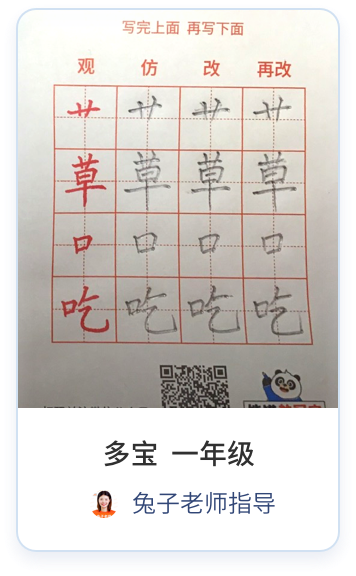 写完上面 再写下面
观 仿 改 再改
艹 艹 艹 艹
草 草 草 草
口 口 口 口
吃 吃 吃 吃
多宝 一年级
兔子老师指导